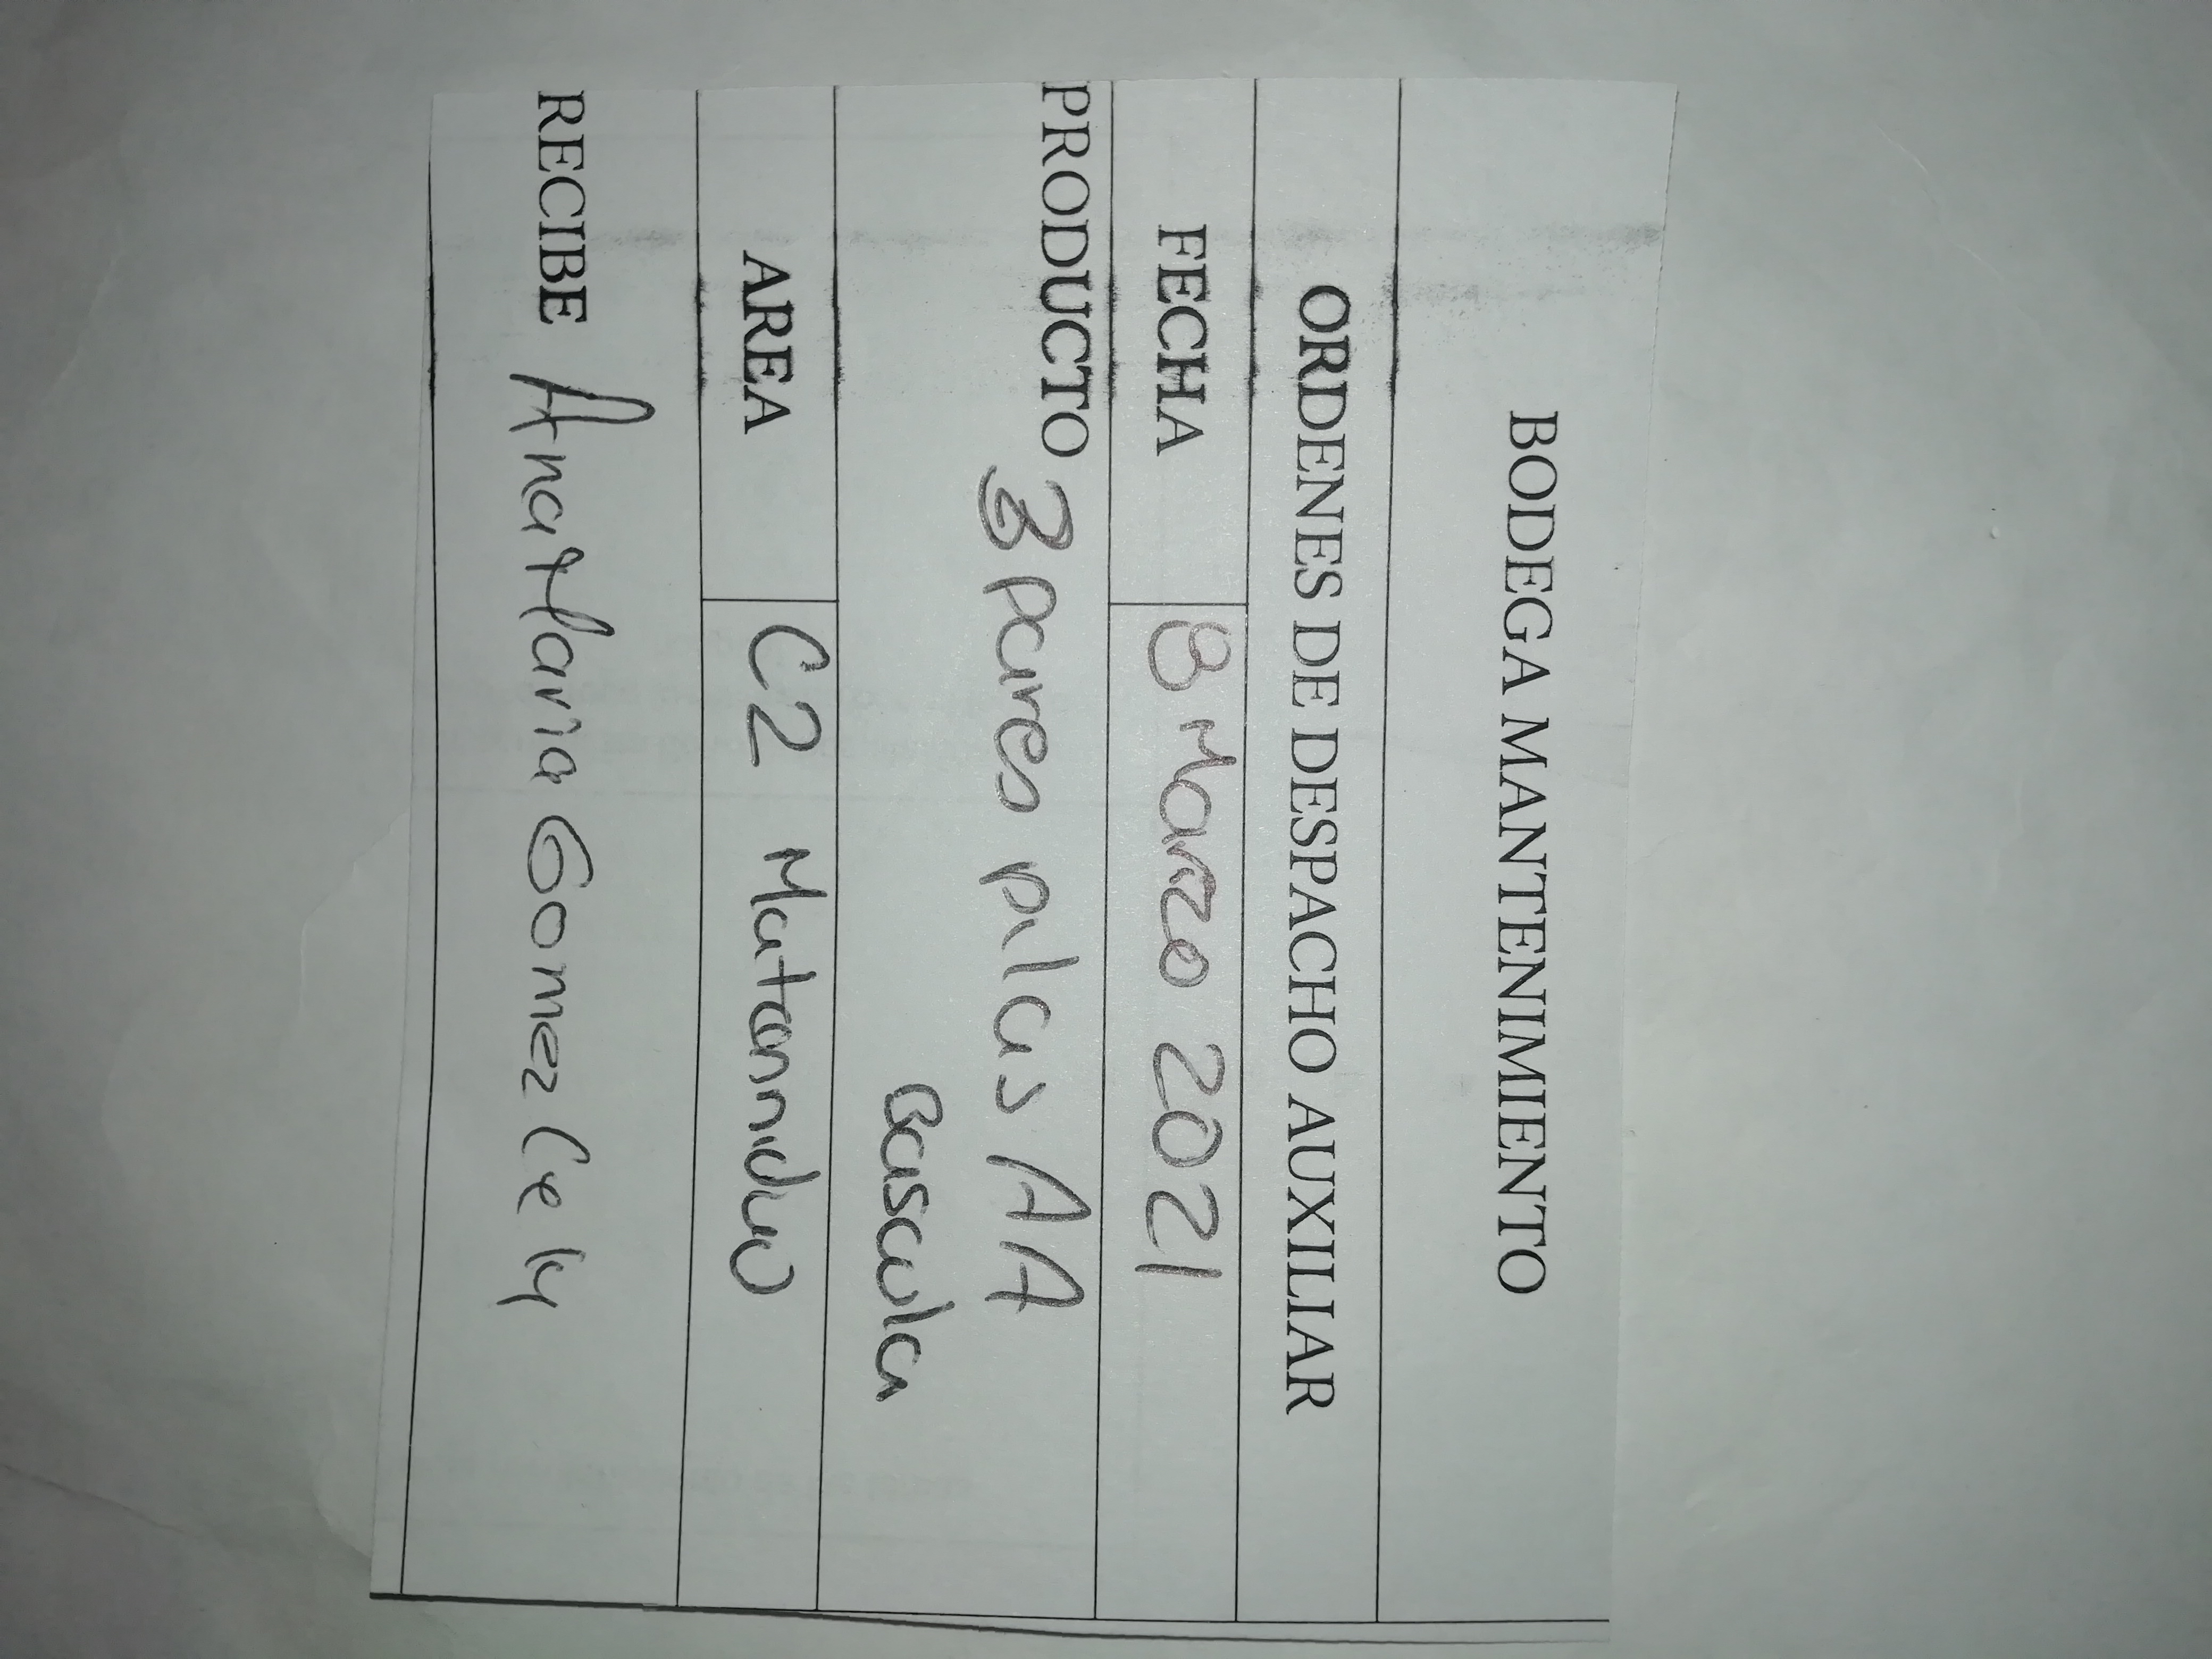 BODEGA MANTENIMIENTO
ORDENES DE DESPACHO AUXILIAR
FECHA 8 Marzo 2021
PRODUCTO 3 pares pilas AA
Bascula
AREA C2
RECIBE Ana Maria Gomez Cely